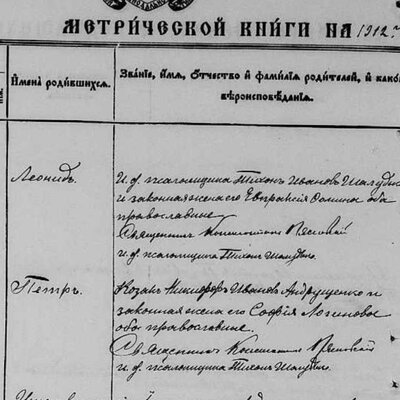 МЕТРИ́ЧЕСКОЙ КНИ́ГИ НА 1912 г.
И́мена роди́вшихся.
Зва́нїе, и́мя, о́тчество и҆ фами́лїя роди́телей, и҆ како
вѣроисповѣ́данїя.
Леонидъ.
И. д. псаломщика Тихонъ Ивановъ
и законная жена его Евпраксія оба
православные
Священникъ
и. д. псаломщика Тихонъ
Петръ.
Козакъ Никифоръ Ивановъ Андрущенко и
законная жена его Софія Логиновна
оба православные.
Священникъ
и. д. псаломщика Тихонъ